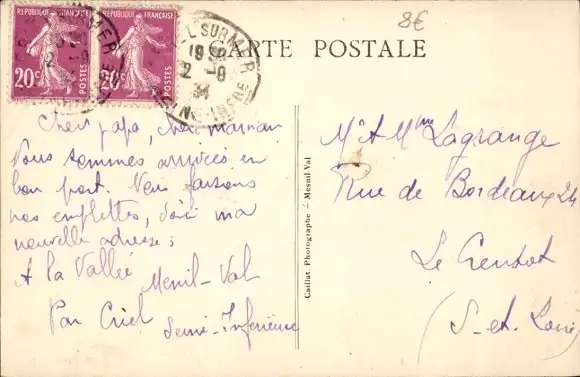 8€
RÉPUBLIQUE FRANÇAISE
20c POSTES
RÉPUBLIQUE FRANÇAISE
20c POSTES
CARTE POSTALE
CRIEL SUR MER
19
2 - 9
34
SEINE INFRE
Cher papa, chère maman
Nous sommes arrivés en
bon port. Nous faisons
nos emplettes, voici ma
nouvelle adresse;
A la Vallée
Mesnil-Val
Par Criel
Seine-Inférieure
Caillat Photographe - Mesnil-Val
Mr & Mme Lagrange
Rue de Bordeaux 24
Le Creusot
(S-et-Loire)